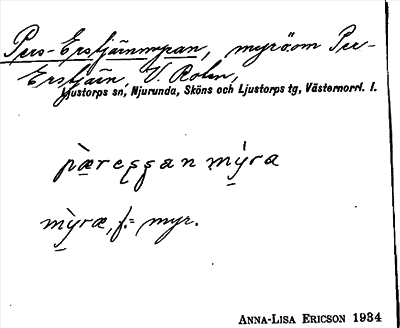 Pers-Erstjärnmyran, myr ö. om Per-
Erstjärn, V. Rolm,
Ljustorps sn, Njurunda, Sköns och Ljustorps tg, Västernorrl. l.
pæreʂʂan mýra
mỳræ, f. = myr.
ANNA-LISA ERICSON 1934